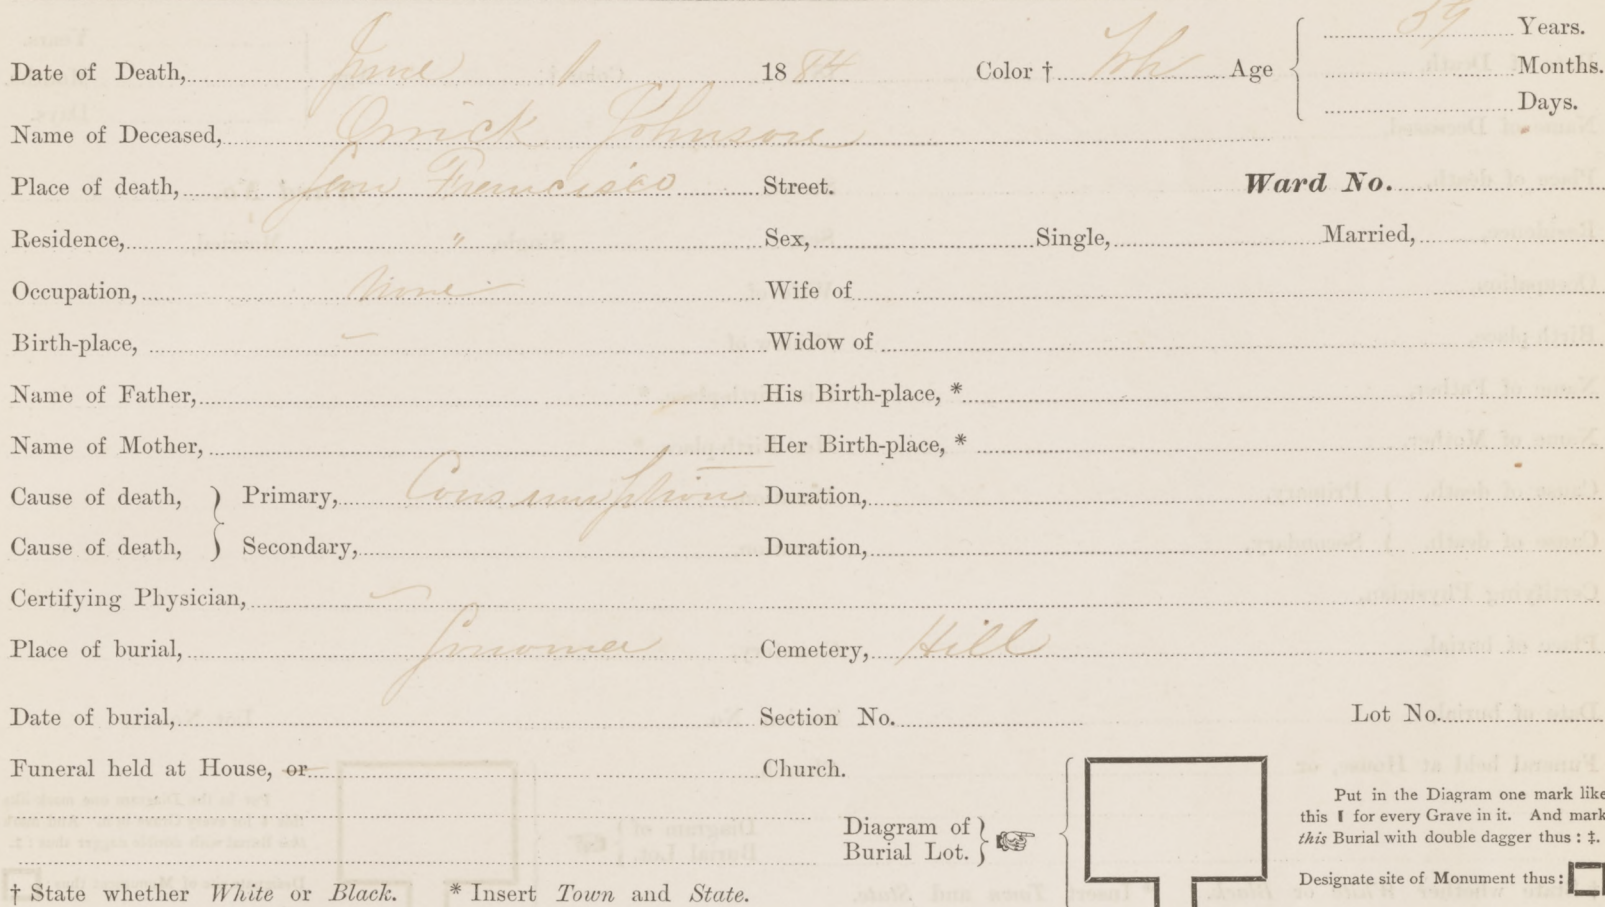 59 Years.
Date of Death, June 1 1884 Color † Wh Age Months.
Days.
Name of Deceased, Orrick Johnson
Place of death, San Francisco Street. Ward No.
Residence, " Sex, Single, Married,
Occupation, None Wife of
Birth-place, Widow of
Name of Father, His Birth-place, *
Name of Mother, Her Birth-place, *
Cause of death, } Primary, Consumption Duration,
Cause of death, } Secondary, Duration,
Certifying Physician,
Place of burial, Cemetery, Hill
Date of burial, Section No. Lot No.
Funeral held at House, or Church.
Put in the Diagram one mark like
this ❙ for every Grave in it. And mark
this Burial with double dagger thus : ‡.
Diagram of
Burial Lot. } ☞
Designate site of Monument thus :
† State whether White or Black. * Insert Town and State.